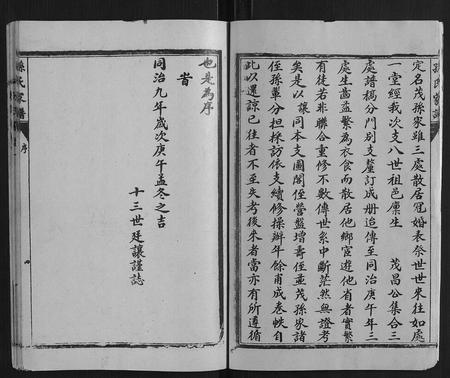 定名茂孫家雖三處散居冠婚表祭世世來往如處
一堂經我次支八世祖邑廩生 茂昌公集合三
處譜稿分門別支釐訂成册迨傳至同治庚午年三
處生齒益繁為衣食而散居他鄉宦遊他省者實繁
有徒若非聯合重修不數傳世系中斷茫然無證考
矣是以讓同本支圖閣侄營盤增壽侄孟茂孫家諸
侄孫輩分担採訪依支續修操辦年餘甫成卷帙自
此以還諒已往者不至失考後來者當亦有所遵循
也是為序
旹
同治九年歲次庚午孟冬之吉
十三世廷讓謹誌
孫氏家譜
序
四